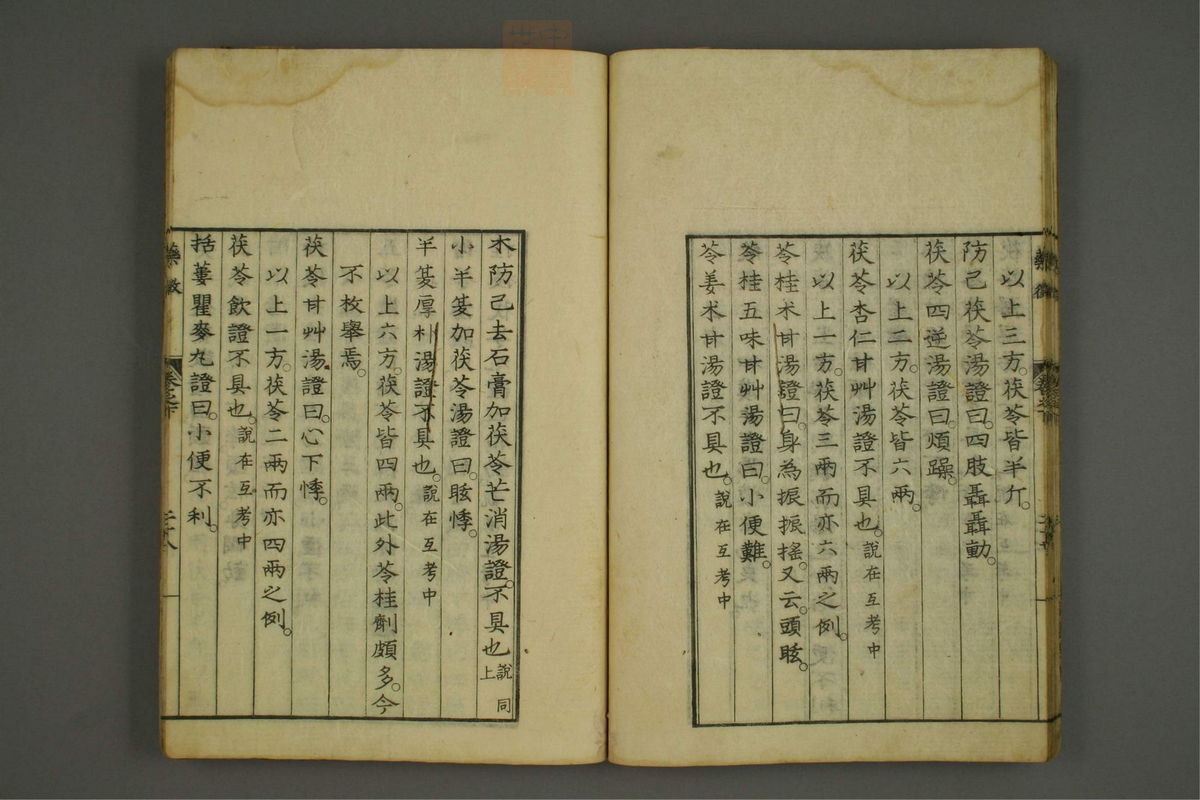 以上三方。茯苓皆半斤。
防己茯苓湯證曰。四肢聶聶動。
茯苓四逆湯證曰。煩躁。
以上二方。茯苓皆六兩。
茯苓杏仁甘艸湯證不具也。說在互考中
以上一方。茯苓三兩而亦六兩之例。
苓桂朮甘湯證曰。身為振振搖。又云。頭眩。
苓桂五味甘艸湯證曰。小便難。
苓姜朮甘湯證不具也。說在互考中
木防己去石膏加茯苓芒消湯證。不具也說同上
小半夏加茯苓湯證曰。眩悸。
半夏厚朴湯證不具也。說在互考中
以上六方。茯苓皆四兩。此外苓桂劑頗多。今
不枚舉焉。
茯苓甘艸湯證曰。心下悸。
以上一方。茯苓二兩而亦四兩之例。
茯苓飲證不具也。說在互考中
括蔞瞿麥丸證曰。小便不利。
藥徵
卷之下